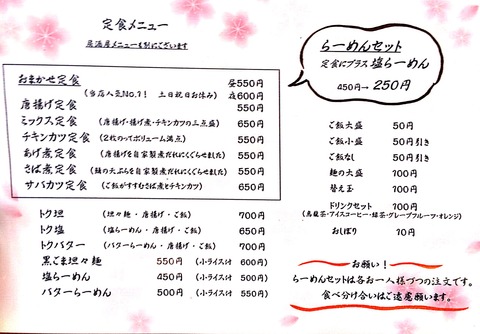 定食メニュー
居酒屋メニューも別にございます
おまかせ定食 昼550円
(当店人気No.1! 土日祝日お休み) 夜600円
唐揚げ定食 550円
ミックス定食 (唐揚げ・揚げ煮・チキンカツの三点盛) 650円
チキンカツ定食 (2枚のってボリューム満点) 550円
あげ煮定食 (唐揚げを自家製煮だれにくぐらせました) 550円
さば煮定食 (鯖の天ぷらを自家製煮だれにくぐらせました) 550円
サバカツ定食 (ご飯がすすむさば煮とチキンカツ) 650円
トク坦 (坦々麺・唐揚げ・ご飯) 700円
トク塩 (塩らーめん・唐揚げ・ご飯) 650円
トクバター (バターらーめん・唐揚げ・ご飯) 700円
黒ごま坦々麺 550円 (小ライス付 600円)
塩らーめん 450円 (小ライス付 500円)
バターらーめん 500円 (小ライス付 550円)
らーめんセット
定食にプラス 塩らーめん
450円→250円
ご飯大盛 50円
ご飯小盛 50円引き
ご飯なし 50円引き
麺の大盛 100円
替え玉 100円
ドリンクセット 100円
(烏龍茶・アイスコーヒー・緑茶・グレープフルーツ・オレンジ)
おしぼり 10円
お願い!
らーめんセットは各お一人様づつの注文です。
食べ分け合いはご遠慮願います。